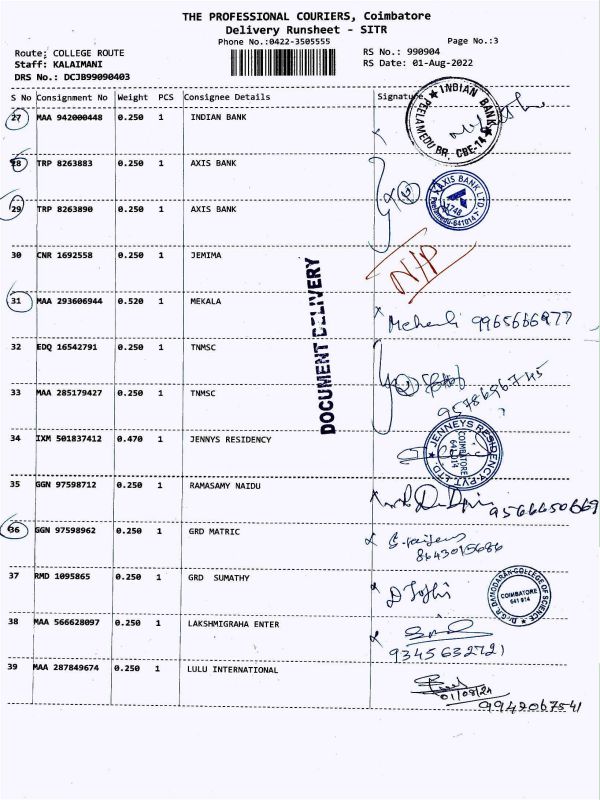 THE PROFESSIONAL COURIERS, Coimbatore
Delivery Runsheet - SITR
Phone No.:0422-3505555 Page No.:3
Route: COLLEGE ROUTE RS No.: 990904
Staff: KALAIMANI RS Date: 01-Aug-2022
DRS No.: DCJB99090403
S No Consignment No Weight PCS Consignee Details Signature
27 MAA 942000448 0.250 1 INDIAN BANK
INDIAN BANK
PEELAMEDU BR. CBE-14
28 TRP 8263883 0.250 1 AXIS BANK
AXIS BANK LTD.
1748
Peelamedu-641014
29 TRP 8263890 0.250 1 AXIS BANK
30 CNR 1692558 0.250 1 JEMIMA
N/P
DOCUMENT DELIVERY
31 MAA 293606944 0.520 1 MEKALA
9965666977
32 EDQ 16542791 0.250 1 TNMSC
33 MAA 285179427 0.250 1 TNMSC
9578696745
34 IXM 501837412 0.470 1 JENNYS RESIDENCY
JENNEYS RESIDENCY-PVT.LTD
COIMBATORE
641014
35 GGN 97598712 0.250 1 RAMASAMY NAIDU
9566650669
36 GGN 97598962 0.250 1 GRD MATRIC
8643015686
37 RMD 1095865 0.250 1 GRD SUMATHY
Dr.G.R. DAMODARAN COLLEGE OF SCIENCE
COIMBATORE
641 014
38 MAA 566628097 0.250 1 LAKSHMIGRAHA ENTER
9345632721
39 MAA 287849674 0.250 1 LULU INTERNATIONAL
01/08/22
9942067541